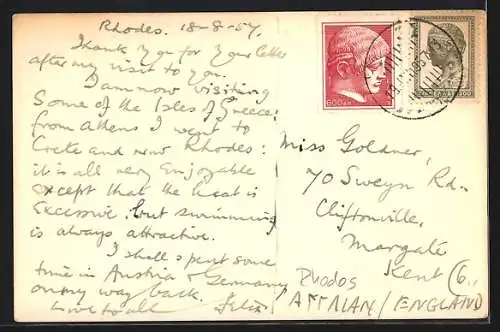 Rhodes. 18-8-54.
Thank you for your letter
after my visit to you.
I am now visiting
Some of the Isles of Greece:
from Athens I went to
Crete and now Rhodes:
it is all very Enjoyable
except that the heat is
Excessive. but swimming
is always attractive.
I shall spent some
time in Austria & Germany
on my way back.
Love to all Felix
600
Miss Goldner,
70 Sweyn Rd.
Cliftonville,
Margate
Kent
Rhodos
/ENGLAND